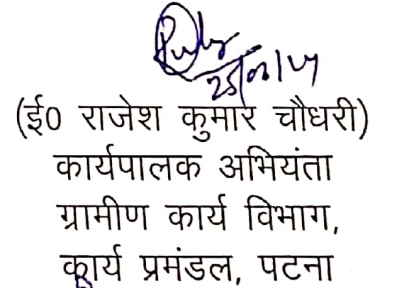 (ई0 राजेश कुमार चौधरी)
कार्यपालक अभियंता
ग्रामीण कार्य विभाग,
कार्य प्रमंडल, पटना